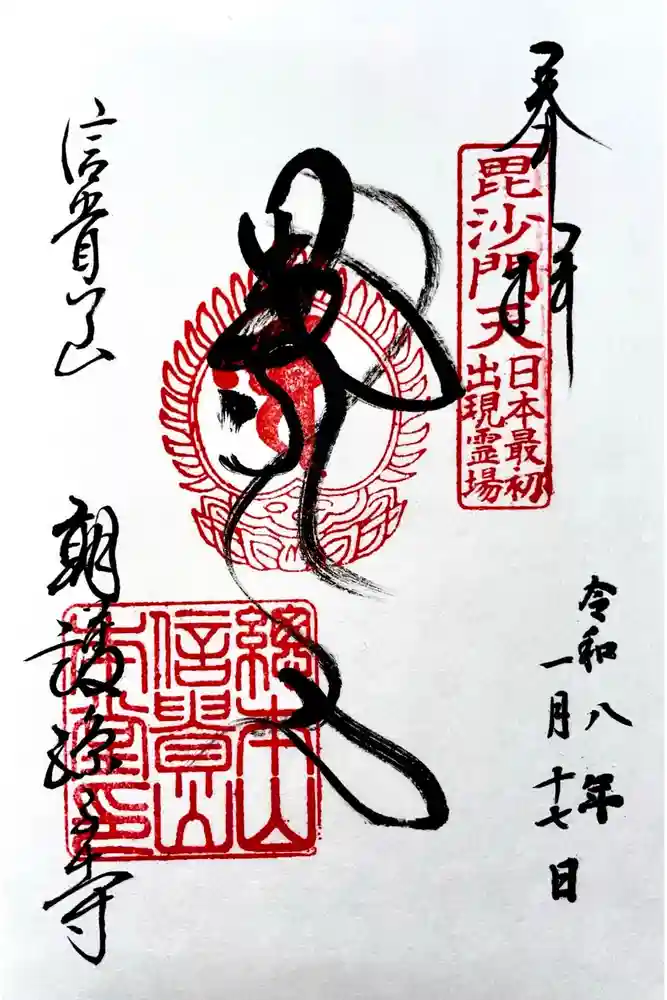 奉拝
毘沙門天
日本最初
出現霊場
令和八年
一月十七日
總本山
信貴山
本堂印
信貴山
朝護孫子寺